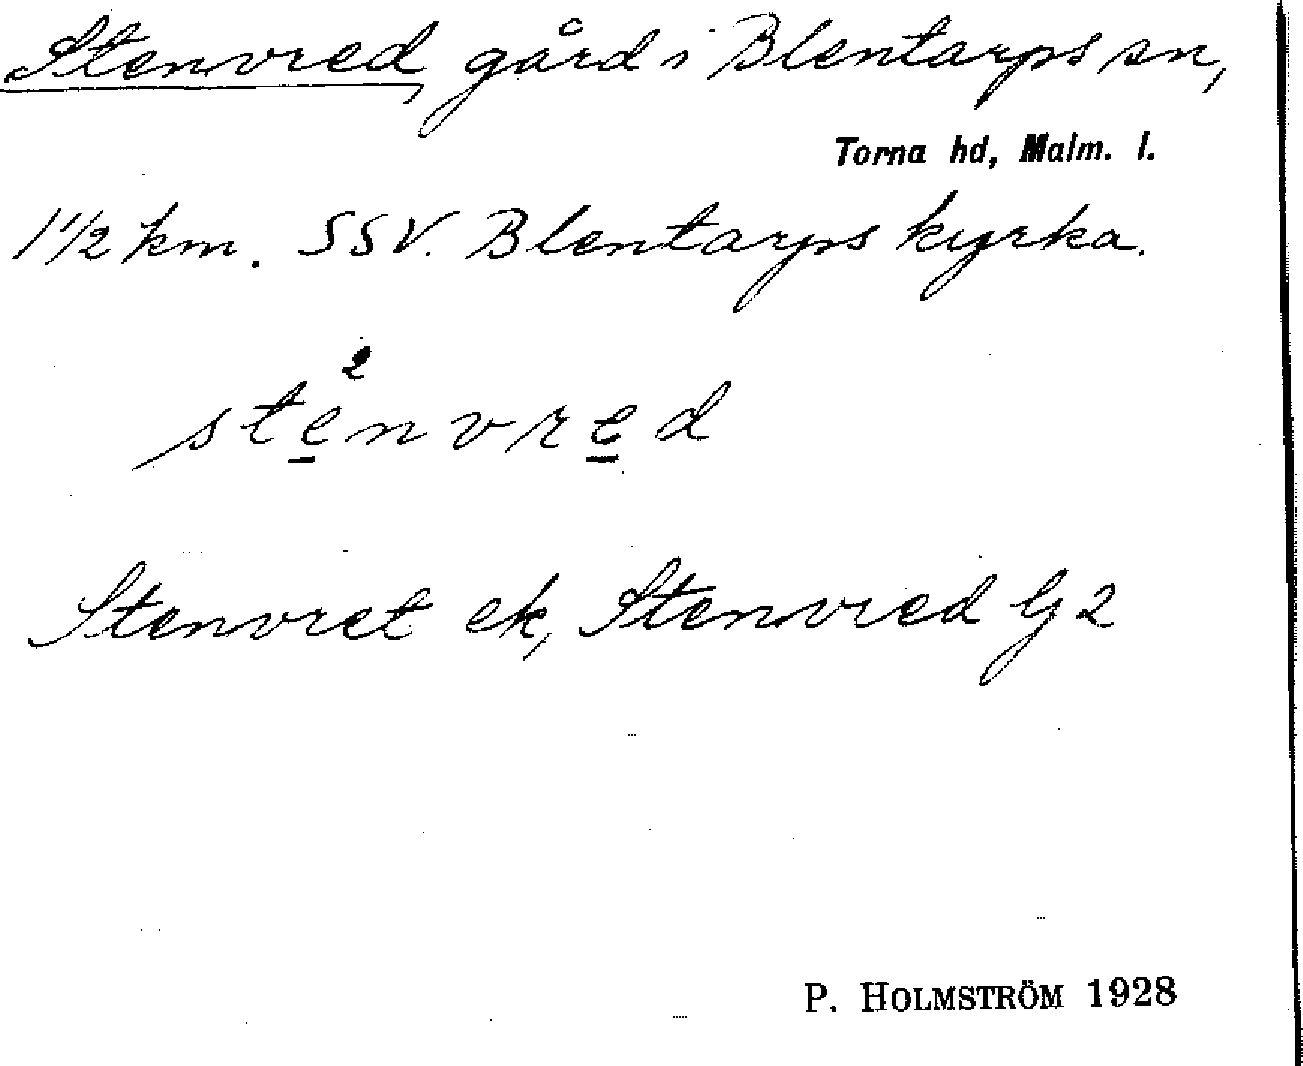 Stenvred, gård i Blentarps sn,
Torna hd, Malm. l.
1 1/2 km. SSV. Blentarps kyrka.
ste̲²nvre̲d
Stenvret ek, Stenvred G 2
P. HOLMSTRÖM 1928